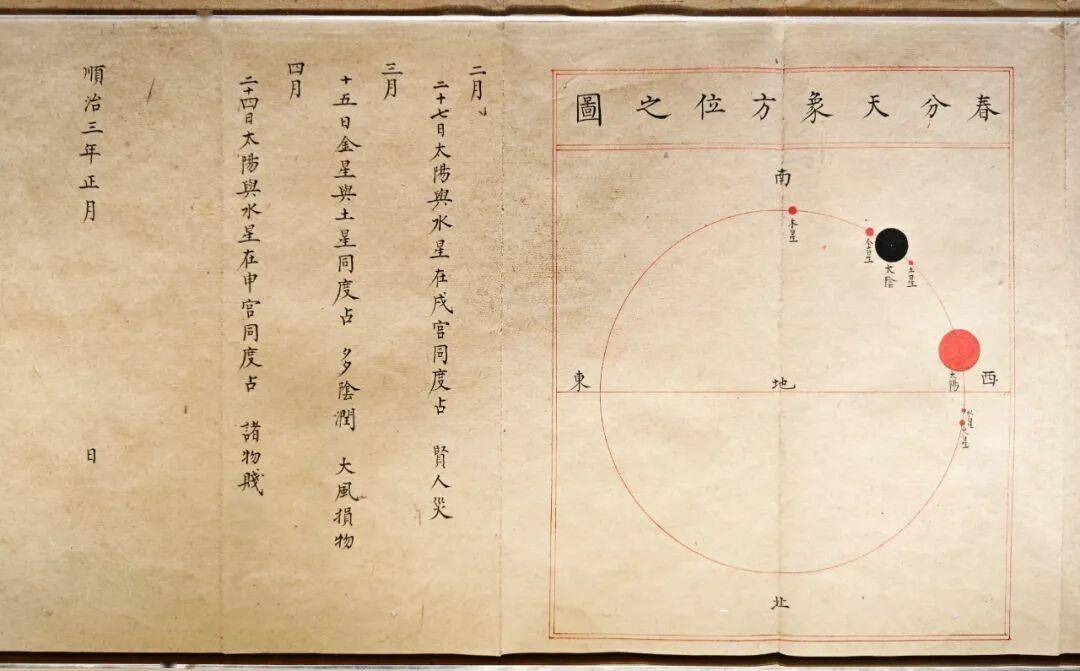 春分天象方位之圖
南
木星
金星
太陰
土星
太陽
西
地
東
水星
火星
北
二月
二十七日太陽與水星在戌宮同度占　賢人災
三月
十五日金星與土星同度占　多陰潤　大風損物
四月
二十四日太陽與水星在申宮同度占　諸物賤
順治三年正月　日